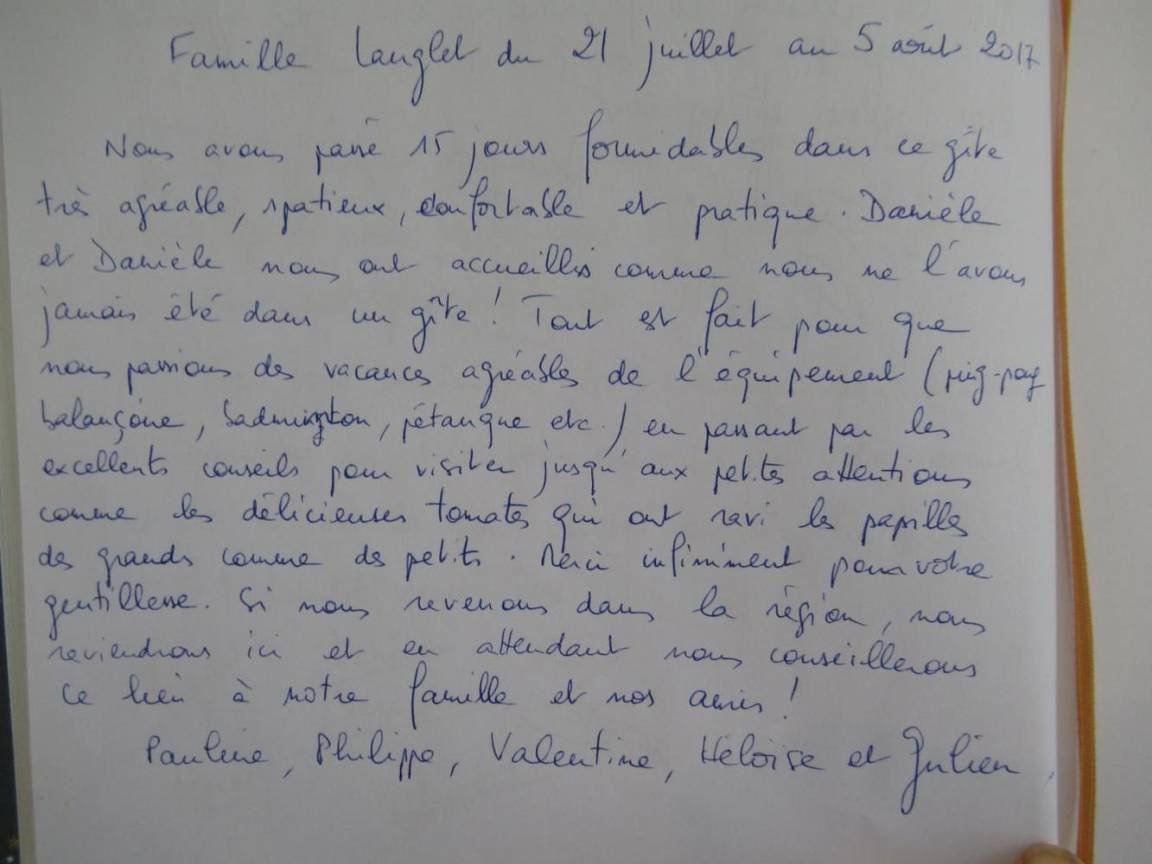 Famille Langlet du 21 juillet au 5 août 2017
Nous avons passé 15 jours formidables dans ce gîte
très agréable, spatieux, confortable et pratique. Danièle
et Danièle nous ont accueillis comme nous ne l'avons
jamais été dans un gîte ! Tout est fait pour que
nous passions des vacances agréables de l'équipement (ping-pong
balançoire, badmington, pétanque etc.) en passant par les
excellents conseils pour visiter jusqu'aux petites attentions
comme les délicieuses tomates qui ont ravi les papilles
des grands comme des petits. Merci infiniment pour votre
gentillesse. Si nous revenons dans la région, nous
reviendrons ici et en attendant nous conseillerons
ce lieu à notre famille et nos amis !
Pauline, Philippe, Valentine, Héloïse et Julien